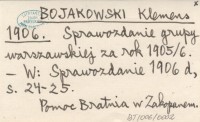 BOJAKOWSKI Klemens
1906. Sprawozdanie grupy
warszawskiej za rok 1905/6.
- W: Sprawozdanie 1906 d,
s. 24-25.
Pomoc Bratnia w Zakopanem.